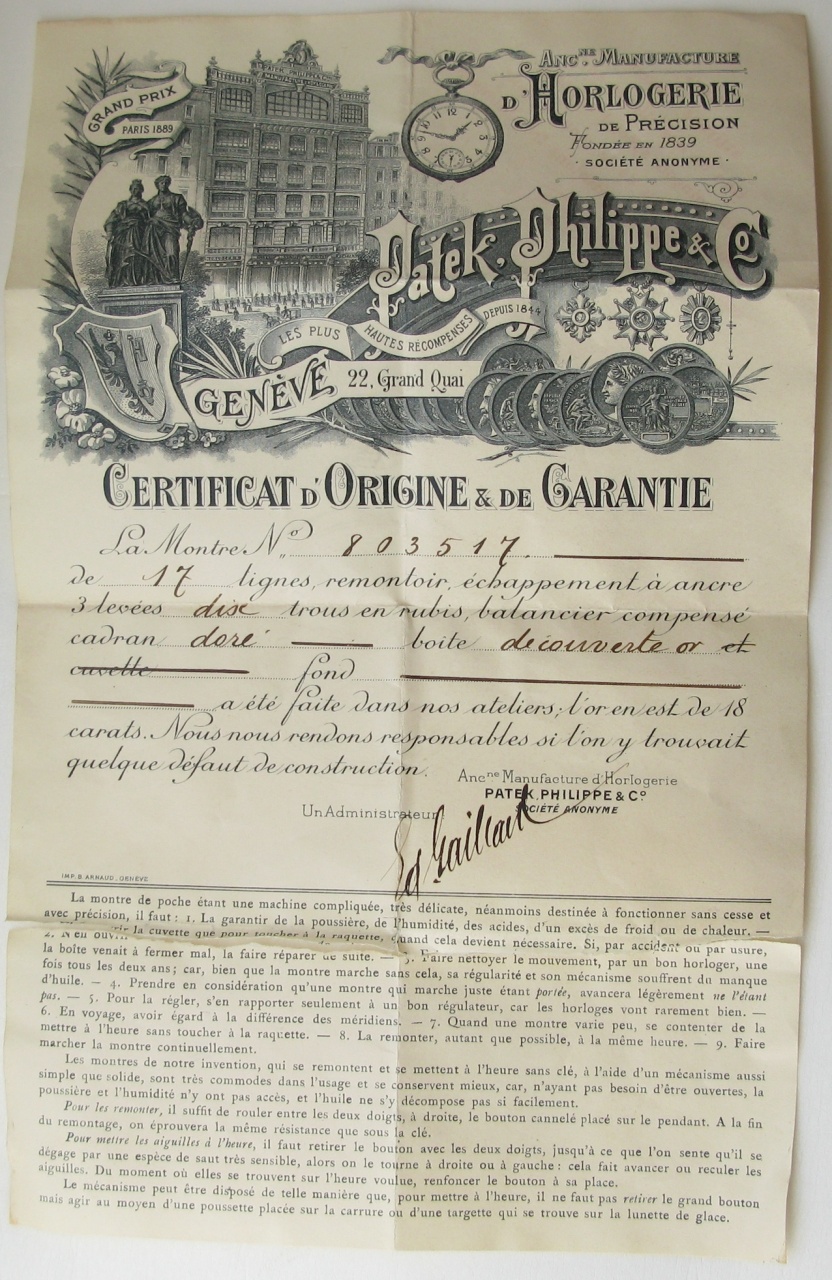 GRAND PRIX
PARIS 1889
PATEK PHILIPPE & Cie
MANUFACTURE D'HORLOGERIE
ANCNE. MANUFACTURE
D'HORLOGERIE
DE PRÉCISION
FONDÉE EN 1839
· SOCIÉTÉ ANONYME ·
Patek, Philippe & Co
LES PLUS HAUTES RÉCOMPENSES DEPUIS 1844
GENÈVE 22, Grand Quai
CERTIFICAT D'ORIGINE & DE GARANTIE
La Montre No 803517.
de 17 lignes, remontoir, échappement à ancre
3 levées dix trous en rubis, balancier compensé
cadran doré boite découverte or et
cuvette fond
a été faite dans nos ateliers; l'or en est de 18
carats. Nous nous rendons responsables si l'on y trouvait
quelque défaut de construction.
Ancne Manufacture d'Horlogerie
PATEK, PHILIPPE & Co
SOCIÉTÉ ANONYME
Un Administrateur
Gaillard
IMP. B. ARNAUD, GENÈVE
La montre de poche étant une machine compliquée, très délicate, néanmoins destinée à fonctionner sans cesse et
avec précision, il faut : 1. La garantir de la poussière, de l'humidité, des acides, d'un excès de froid ou de chaleur. —
2. N'en ouvrir la cuvette que pour toucher à la raquette, quand cela devient nécessaire. Si, par accident ou par usure,
la boîte venait à fermer mal, la faire réparer de suite. — 3. Faire nettoyer le mouvement, par un bon horloger, une
fois tous les deux ans; car, bien que la montre marche sans cela, sa régularité et son mécanisme souffrent du manque
d'huile. — 4. Prendre en considération qu'une montre qui marche juste étant portée, avancera légèrement ne l'étant
pas. — 5. Pour la régler, s'en rapporter seulement à un bon régulateur, car les horloges vont rarement bien. —
6. En voyage, avoir égard à la différence des méridiens. — 7. Quand une montre varie peu, se contenter de la
mettre à l'heure sans toucher à la raquette. — 8. La remonter, autant que possible, à la même heure. — 9. Faire
marcher la montre continuellement.
Les montres de notre invention, qui se remontent et se mettent à l'heure sans clé, à l'aide d'un mécanisme aussi
simple que solide, sont très commodes dans l'usage et se conservent mieux, car, n'ayant pas besoin d'être ouvertes, la
poussière et l'humidité n'y ont pas accès, et l'huile ne s'y décompose pas si facilement.
Pour les remonter, il suffit de rouler entre les deux doigts, à droite, le bouton cannelé placé sur le pendant. A la fin
du remontage, on éprouvera la même résistance que sous la clé.
Pour mettre les aiguilles à l'heure, il faut retirer le bouton avec les deux doigts, jusqu'à ce que l'on sente qu'il se
dégage par une espèce de saut très sensible, alors on le tourne à droite ou à gauche : cela fait avancer ou reculer les
aiguilles. Du moment où elles se trouvent sur l'heure voulue, renfoncer le bouton à sa place.
Le mécanisme peut être disposé de telle manière que, pour mettre à l'heure, il ne faut pas retirer le grand bouton
mais agir au moyen d'une poussette placée sur la carrure ou d'une targette qui se trouve sur la lunette de glace.